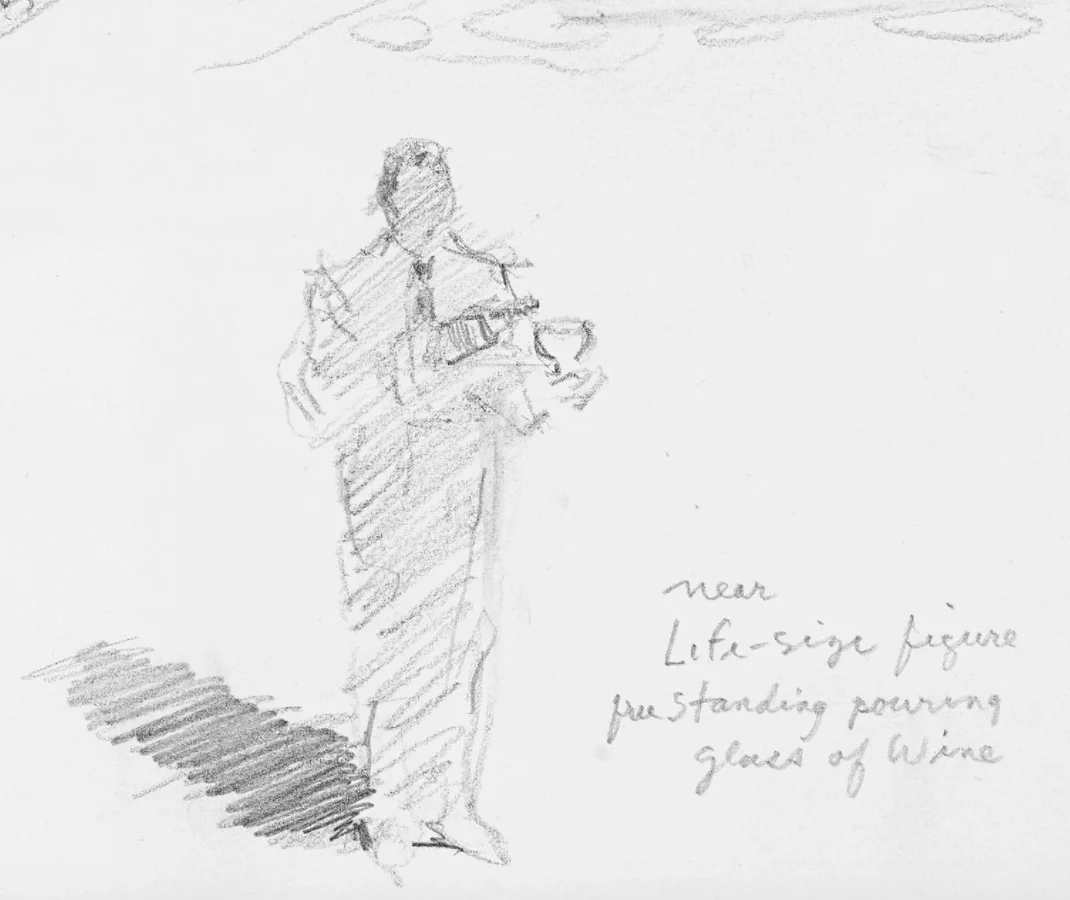 near
Life-size figure
free standing pouring
glass of Wine